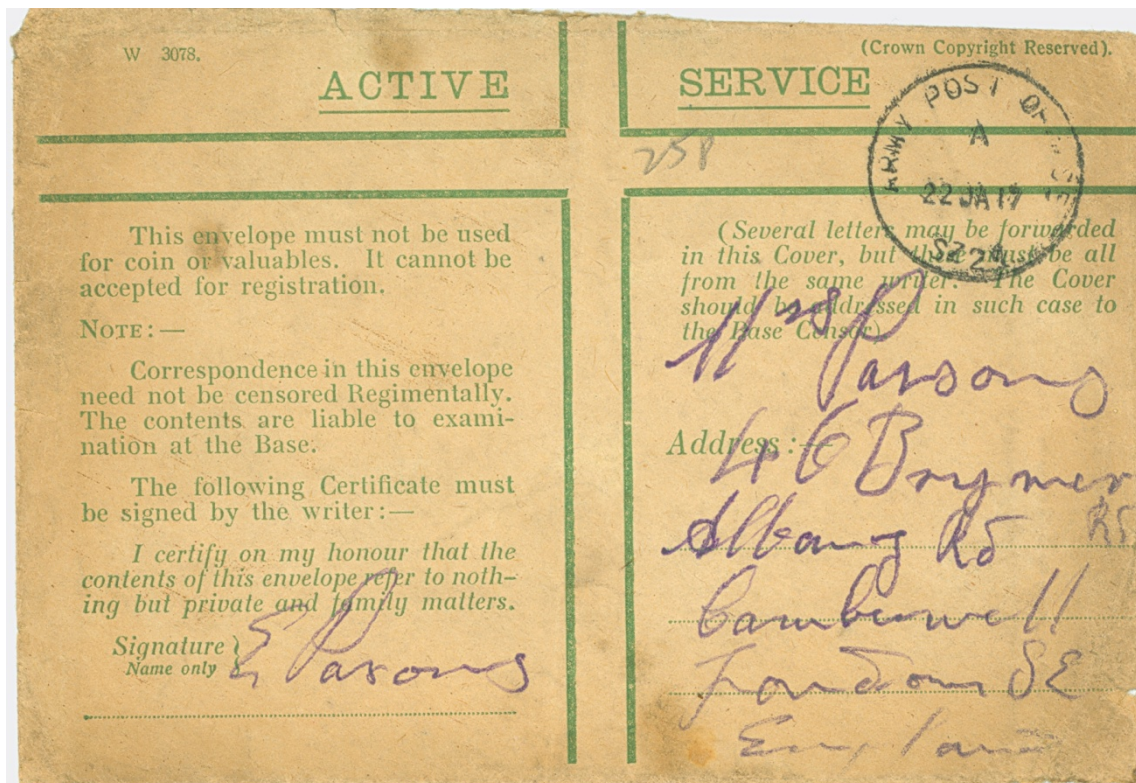 W 3078.
(Crown Copyright Reserved).
ACTIVE SERVICE
258
ARMY POST OFFICE
A
22 JA 19
SZ24
This envelope must not be used
for coin or valuables. It cannot be
accepted for registration.
NOTE:—
Correspondence in this envelope
need not be censored Regimentally.
The contents are liable to exami-
nation at the Base.
The following Certificate must
be signed by the writer:—
I certify on my honour that the
contents of this envelope refer to noth-
ing but private and family matters.
Signature
Name only
E Parsons
(Several letters may be forwarded
in this Cover, but these must be all
from the same writer. The Cover
should be addressed in such case to
the Base Censor)
Mrs Parsons
Address:—
46 Brymer
Rd
Albany Rd
Camberwell
London SE
England